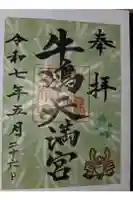 奉拝
牛嶋天満宮
令和七年五月二十六日